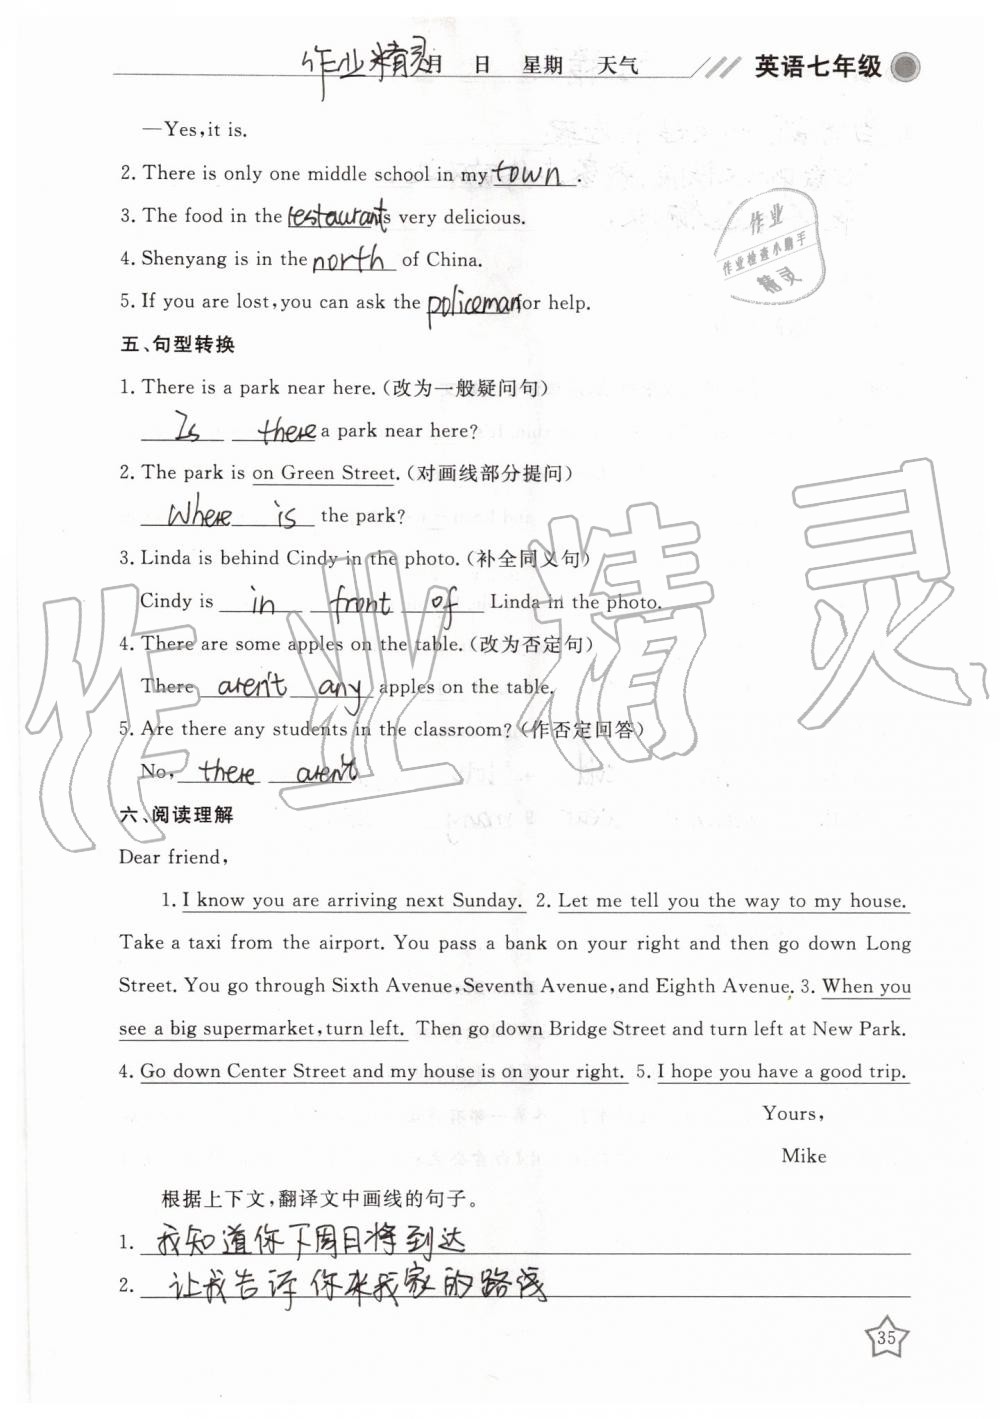 作业精灵月 日 星期 天气 英语七年级
—Yes,it is.
2. There is only one middle school in my town.
3. The food in the restaurant is very delicious.
4. Shenyang is in the north of China.
5. If you are lost,you can ask the policeman for help.
作业
作业检查小助手
精灵
五、句型转换
1. There is a park near here.(改为一般疑问句)
Is there a park near here?
2. The park is on Green Street.(对画线部分提问)
Where is the park?
3. Linda is behind Cindy in the photo.(补全同义句)
Cindy is in front of Linda in the photo.
4. There are some apples on the table.(改为否定句)
There aren't any apples on the table.
5. Are there any students in the classroom?(作否定回答)
No, there aren't
作业精灵
六、阅读理解
Dear friend,
1. I know you are arriving next Sunday. 2. Let me tell you the way to my house.
Take a taxi from the airport. You pass a bank on your right and then go down Long
Street. You go through Sixth Avenue,Seventh Avenue,and Eighth Avenue. 3. When you
see a big supermarket,turn left. Then go down Bridge Street and turn left at New Park.
4. Go down Center Street and my house is on your right. 5. I hope you have a good trip.
Yours,
Mike
根据上下文,翻译文中画线的句子。
1. 我知道你下周日将到达
2. 让我告诉你来我家的路线
35